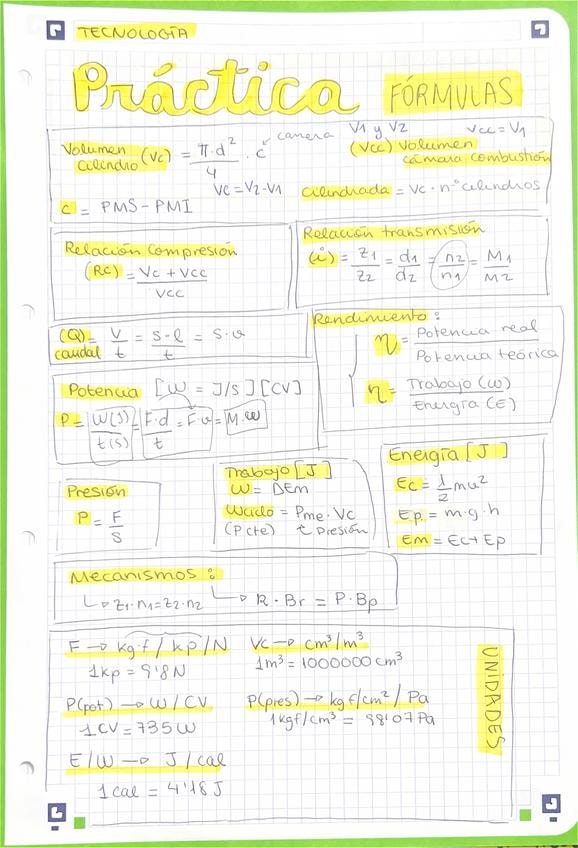 TECNOLOGÍA
Práctica FÓRMULAS
Volumen cilindro (Vc) = π·d²/4 · c
carrera
V1 y V2
Vcc = V1
(Vcc) Volumen
cámara combustión
Vc = V2-V1
Cilindrada = Vc · nº cilindros
c = PMS - PMI
Relación compresión
(Rc) = Vc + Vcc / Vcc
Relación transmisión
(i) = Z1/Z2 = d1/d2 = n2/n1 = M1/M2
(Q) caudal = V/t = S·l/t = S·v
Rendimiento:
η = Potencia real / Potencia teórica
η = Trabajo (W) / Energía (E)
Potencia [W = J/S] [CV]
P = W(J)/t(s) = F·d/t = F·v = M·ω
Presión
P = F/S
Trabajo [J]
W = ΔEm
Wciclo = Pme · Vc
(P cte) t presión
Energía [J]
Ec = 1/2 mv²
Ep = m·g·h
Em = Ec + Ep
Mecanismos:
↳ Z1·n1 = Z2·n2 ↳ R·Br = P·Bp
F → kgf / kp / N
1kp = 9'8N
Vc → cm³/m³
1m³ = 1000000 cm³
P(pot) → W / CV
1CV = 735W
P(pres) → kgf/cm² / Pa
1kgf/cm³ = 98'07Pa
E/W → J / cal
1 cal = 4'18 J
UNIDADES